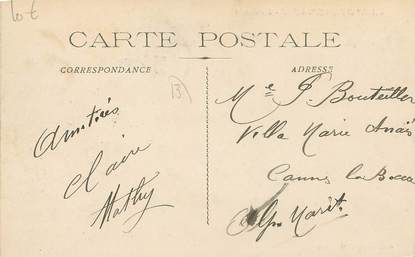 10 €
CARTE POSTALE
CORRESPONDANCE
ADRESSE
13
Amitiés
Claire
Mathy
Me P Bouteiller
Villa Marie Anaïs
Cannes la Bocca
Alpes Marit.